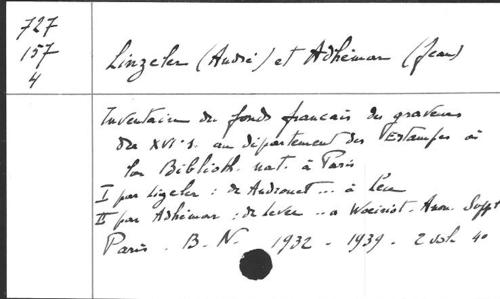 727
157
4
Linzeler (André) et Adhémar (Jean)
Inventaire du fonds français des graveurs
du XVIe s. au département des Estampes de
la Biblioth. nat. à Paris
I par Lizeler : de Androuet ... à Leu
II par Adhémar : de Levée .. a Woeiriot. Anon. Suppt
Paris. B. N. 1932 - 1939 - 2 vol. 4o